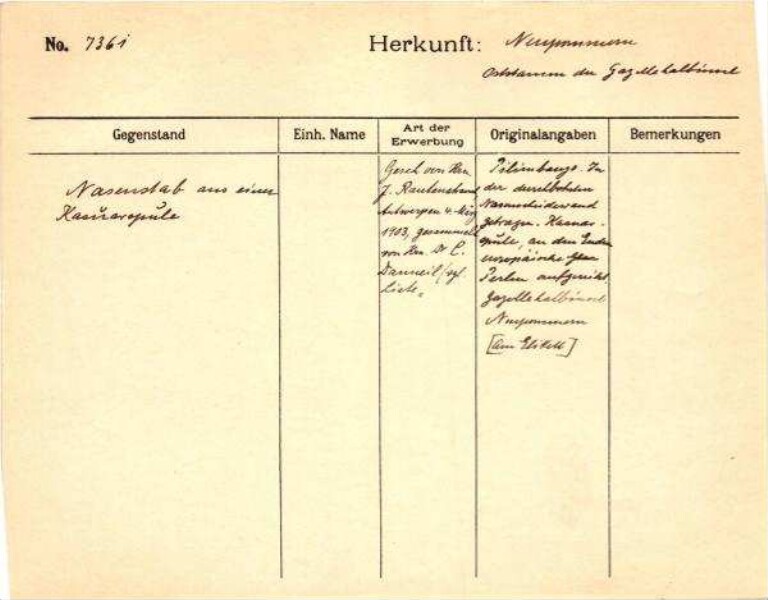 No. 7361
Herkunft: Neupommern
Oststamm der Gazellehalbinsel
Gegenstand
Einh. Name
Art der
Erwerbung
Originalangaben
Bemerkungen
Nasenstab aus einer
Kasuarspule
Gesch. von Hrn.
J. Rautenstrauch
Antwerpen 4. März
1903, gesammelt
von Hrn. Dr. C.
Danneil (vgl.
Liste.
In
der durchbohrten
Nasenscheidewand
getragen. Kasuar-
spule, an den Enden
europäische Glas
Perlen aufgereiht.
Gazellehalbinsel
Neupommern